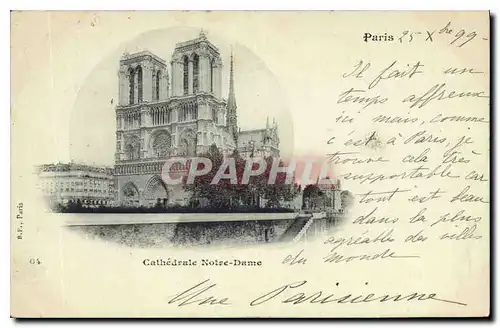 Paris 25 Xbre 99
Il fait un
temps affreux
ici mais, comme
c'est à Paris, je
trouve cela très
supportable car
tout est beau
dans la plus
agréable des villes
du monde
Une Parisienne
CPARAMA
B.F., Paris
64
Cathédrale Notre-Dame